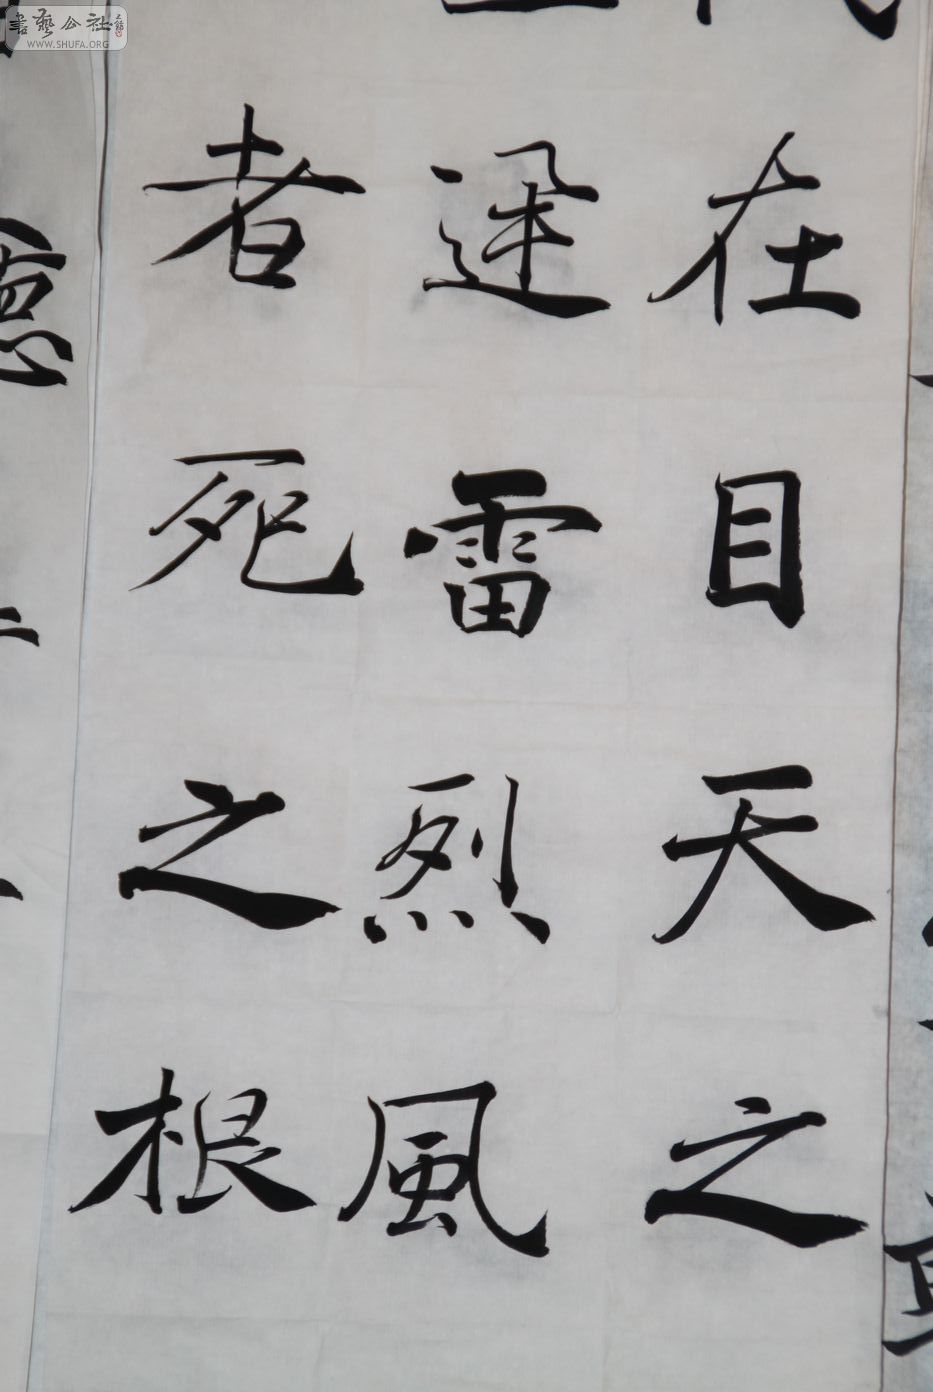 在目天之
迅雷烈風
者死之根
書藝公社
WWW.SHUFA.ORG